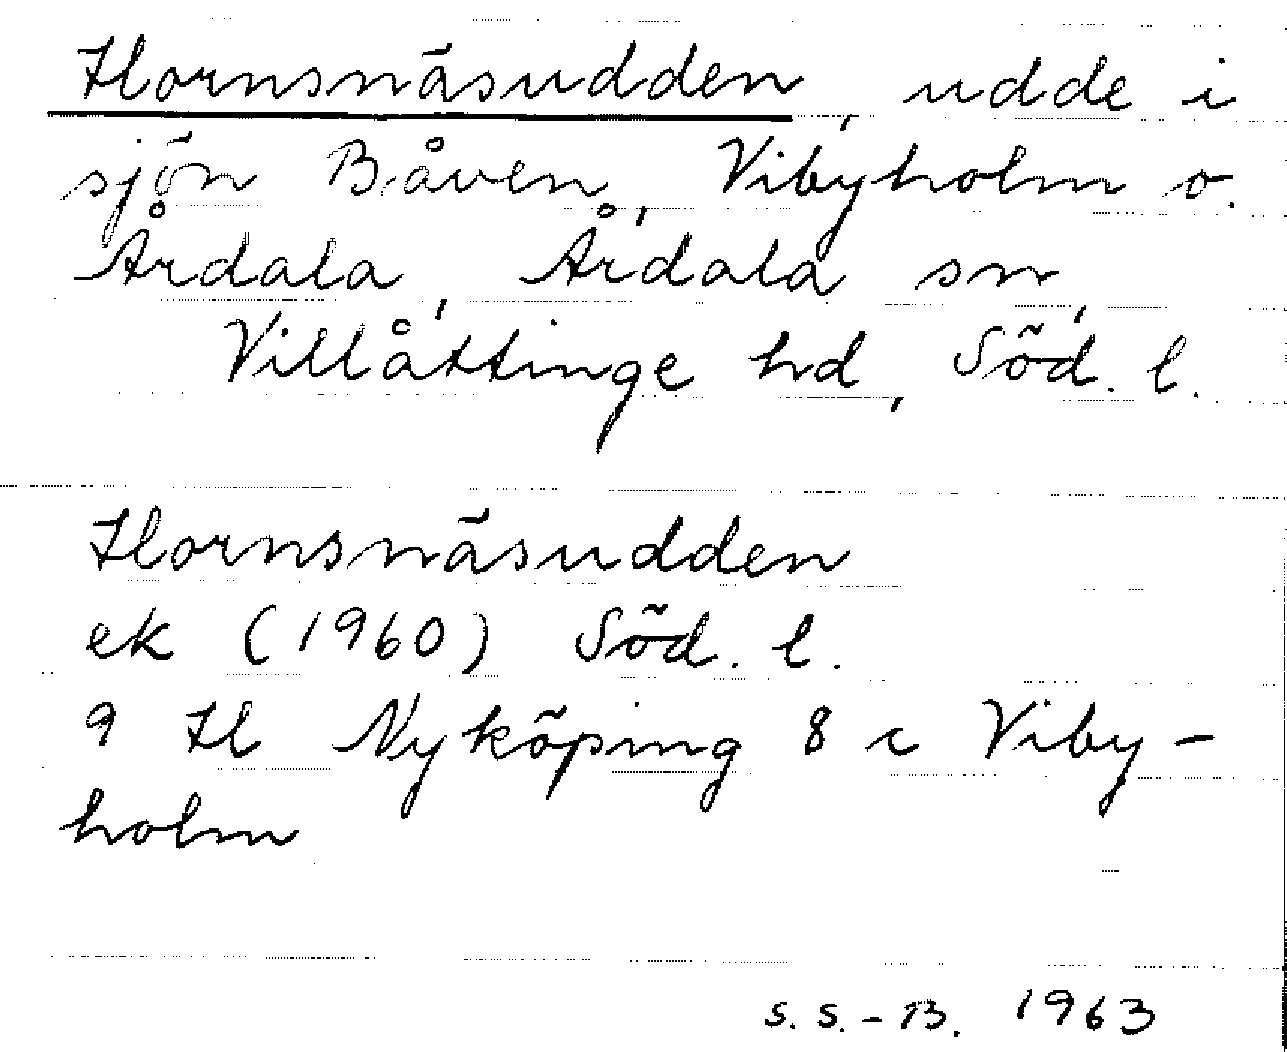 Hornsnäsudden, udde i
sjön Båven, Vibyholm o.
Årdala, Årdala sn,
Villåttinge hd, Söd. l.
Hornsnäsudden
ek (1960) Söd. l.
9 H Nyköping 8 c Viby-
holm
S. S.-B. 1963